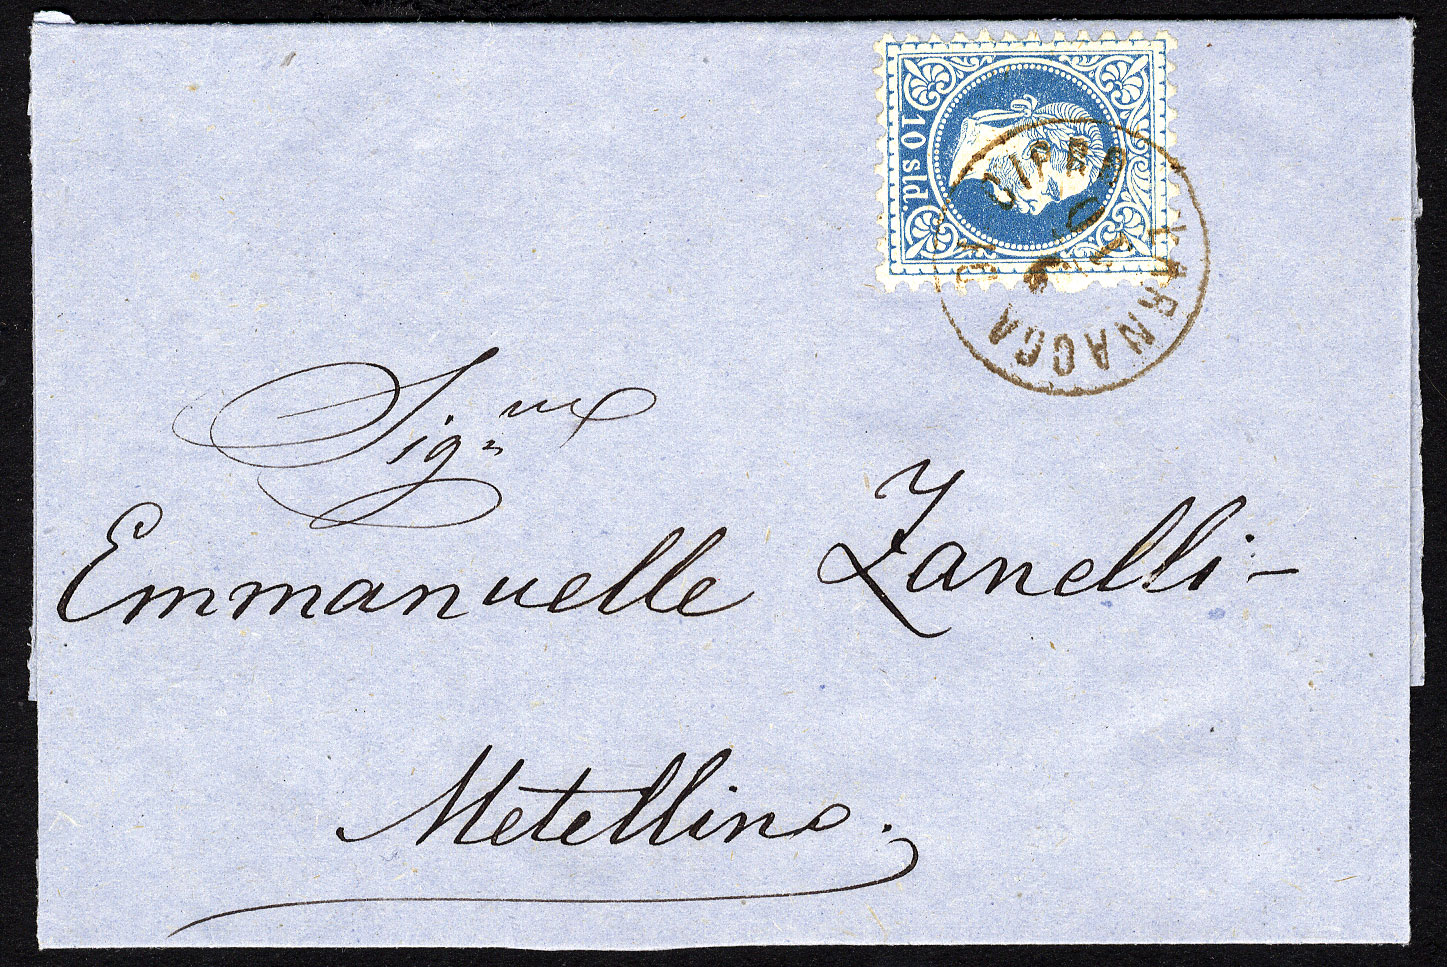 10 sld.
LARNACCA
CIPRO
Sig.re
Emmanuelle Zanelli-
Metellino.